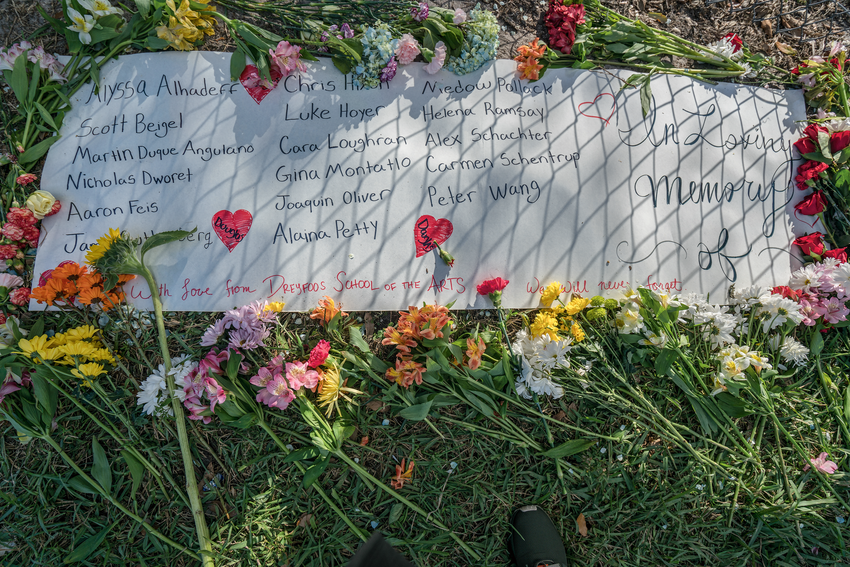 Alyssa Alhadeff
Scott Beigel
Martin Duque Anguiano
Nicholas Dworet
Aaron Feis
Chris
Luke Hoyer
Cara Loughran
Gina Montalto
Joaquin Oliver
Alaina Petty
Meadow Pollack
Helena Ramsay
Alex Schachter
Carmen Schentrup
Peter Wang
In Loving
Memory
of
Douglas
With love from Dreyfoos School of the Arts We will never forget